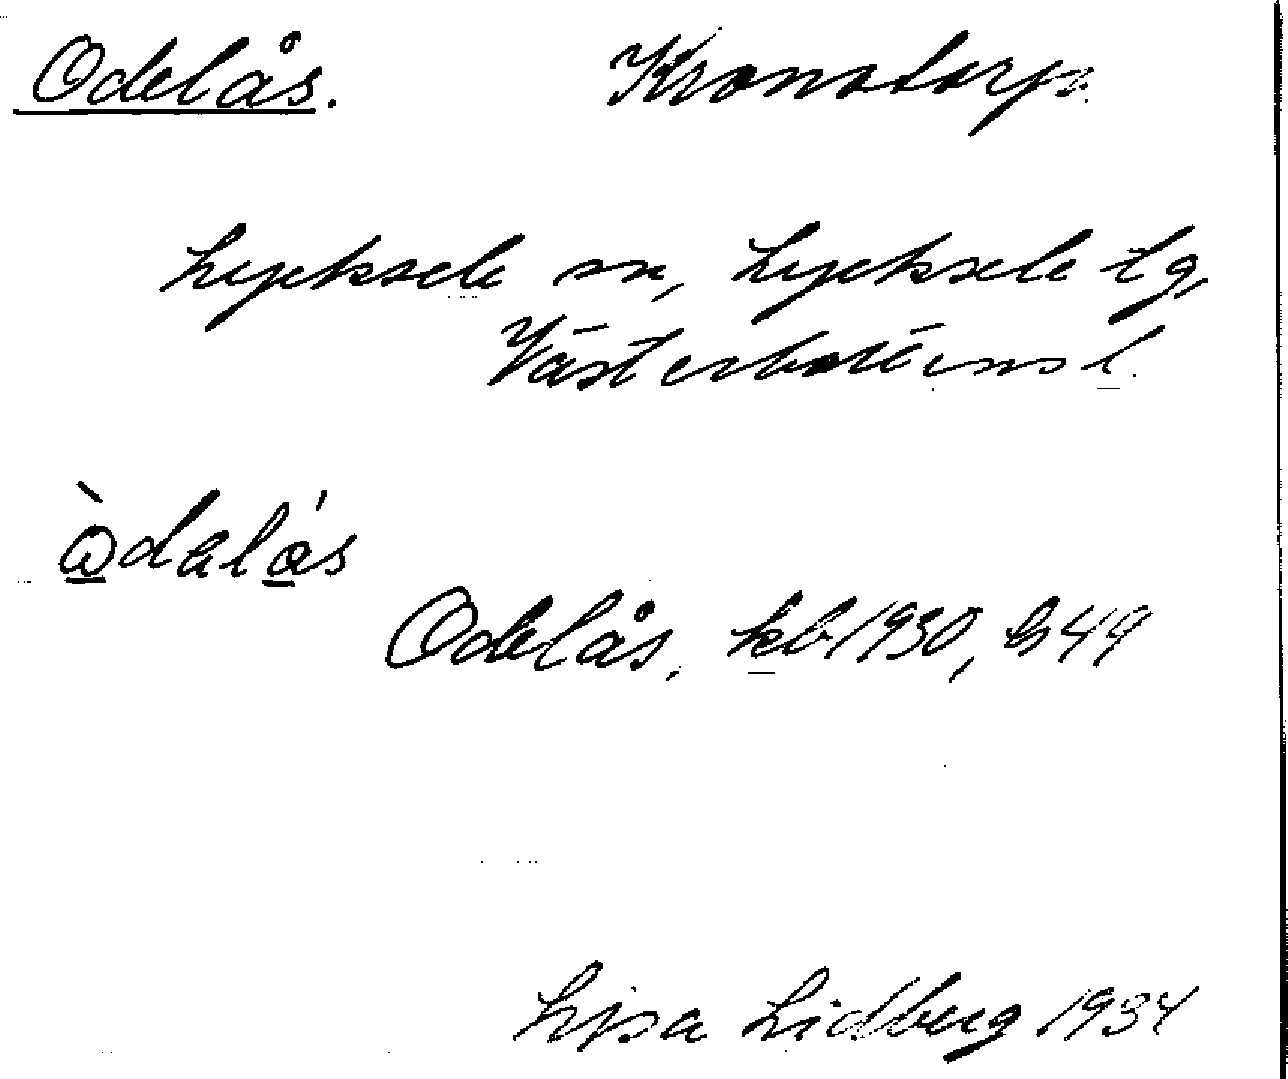 Odelås. Kronotorp.
Lycksele sn, Lycksele tg,
Västerbottens l.
òdelás
Odelås, kb 1930, 449
Lisa Lidberg 1934